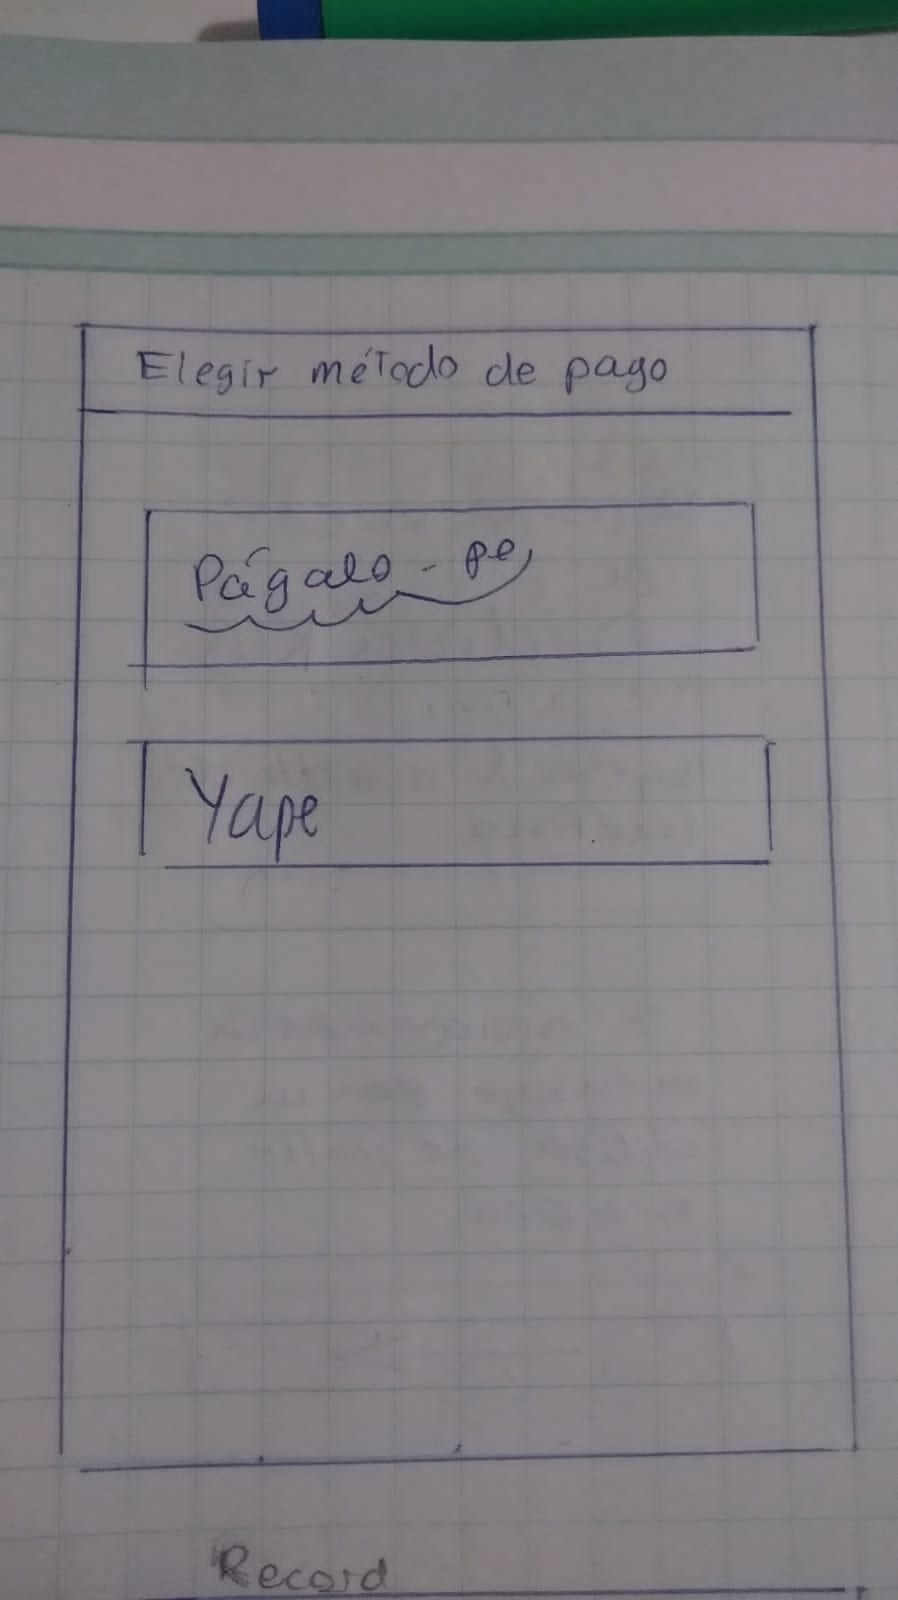 Elegir método de pago
Págalo - pe
Yape
Record